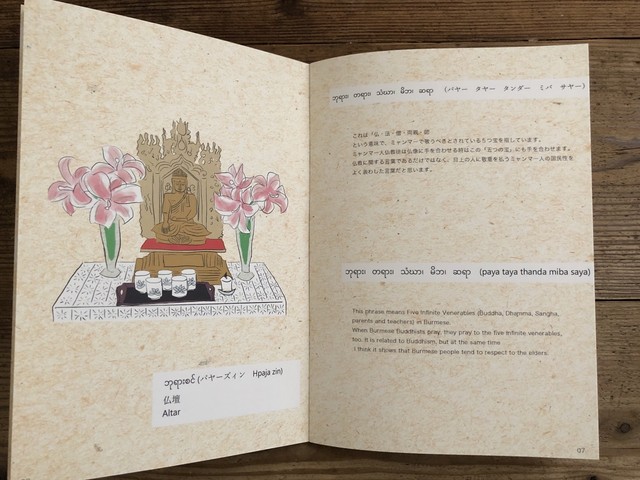 ဘုရားစင် (パヤーズィン Hpaja zin)
仏壇
Altar
ဘုရား၊ တရား၊ သံဃာ၊ မိဘ၊ ဆရာ （パヤー タヤー タンダー ミバ サヤー）
これは「仏・法・僧・両親・師
という意味で、ミャンマーで敬うべきとされている５つ宝を指しています。
ミャンマー人仏教徒は仏像に手を合わせる時はこの「五つの宝」にも手を合わせます。
仏教に関する言葉であるだけではなく、目上の人に敬意を払うミャンマー人の国民性を
よく表わした言葉だと思います。
ဘုရား၊ တရား၊ သံဃာ၊ မိဘ၊ ဆရာ (paya taya thanda miba saya)
This phrase means Five Infinite Venerables (Buddha, Dhamma, Sangha,
parents and teachers) in Burmese.
When Burmese Buddhists pray, they pray to the five infinite venerables,
too. It is related to Buddhism, but at the same time
I think it shows that Burmese people tend to respect to the elders.
07